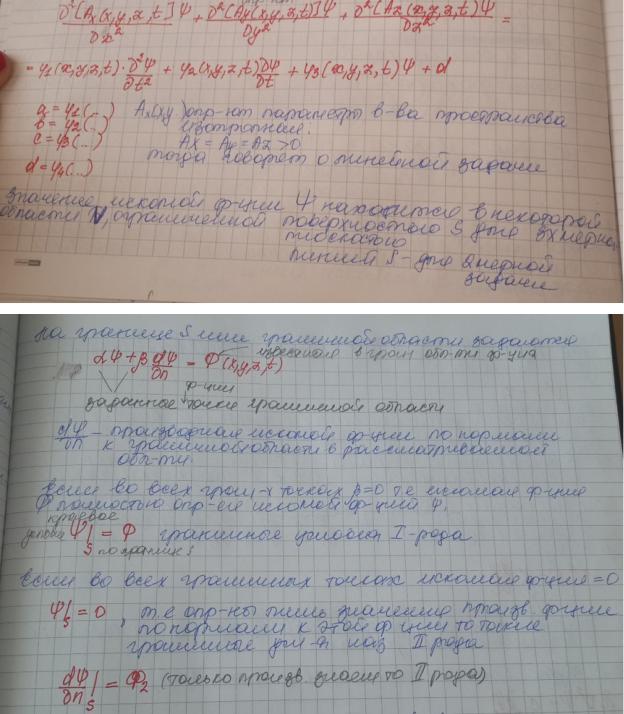 ∂²[Aₓ(x,y,z,t]Ψ/∂x² + ∂²[Ay(x,y,z,t)]Ψ/∂y² + ∂²[Az(x,y,z,t)Ψ/∂z² =
= φ1(x,y,z,t)·∂²Ψ/∂t² + φ2(x,y,z,t)∂Ψ/∂t + φ3(x,y,z,t)Ψ + d
a = φ1(...)
b = φ2(...)
c = φ3(...)
d = φ4(...)
Ax(xy) опр-ют параметры в-ва пространства
изотропная.
Ax = Ay = Az > 0
тогда говорят о линейной задаче
Значение искомой ф-ции Ψ находится в некоторой
области V, ограниченной поверхностью S для 3х мерной,
линией S - для 2мерной
задачи
На границе S или граничной области задаются
αΨ + β dΨ/∂n = Φ(x,y,z,t)
известная в гран обл-ти ф-ция
ф-ции
заданные точки граничной области
dΨ/∂n - производная искомой ф-ции по нормали
к граничной области в рассматриваемой
обл-ти.
Если во всех гран-х точках β=0 т.е искомая ф-ция
Φ полностью опр-ся искомой ф-цией Ψ,
краевое
условие Ψ|S = Φ граничные условия I-рода
по границе S
Если во всех граничных точках искомая ф-ция =0
Ψ|S = 0, т.е опр-ны лишь значение произв. ф-ции
по нормали к этой ф-ции то такие
граничные усл-я наз II рода
dΨ/∂n|S = Φ2 (только произв. знаем то II рода)